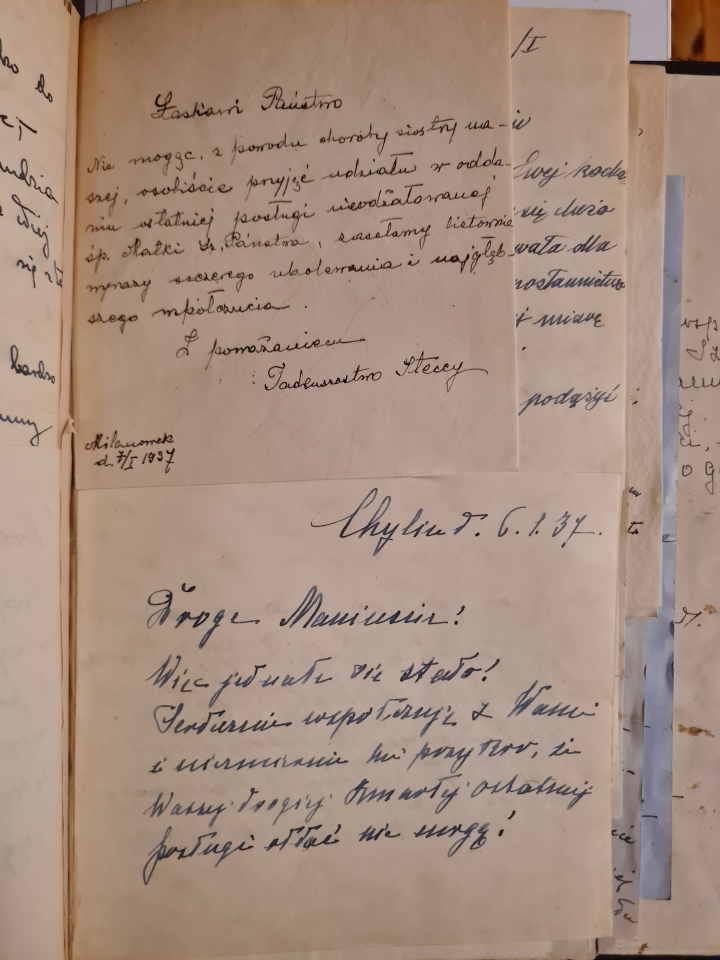 ko do
Łaskawi Państwo
Nie mogąc, z powodu choroby siostry na-
szej, osobiście przyjąć udziału w odda-
niu ostatniej posługi nieodżałowanej
śp. Matki Sz. Państwa, zasełamy listownie
wyrazy szczerego ubolewania i najgłęb-
szego współczucia.
Z poważaniem
Tadeuszostwo Steccy
Milanowek
d. 7/I 1937
Chylin d. 6.1.37.
Drogi Maniusiu!
Więc jednak się stało!
Serdecznie współczuję z Wami
i niezmiernie mi przykro, że
Waszej drogiej Zmarłej ostatniej
posługi oddać nie mogę!
/I
się dużo
wała dla
posłannictwo
podążyć
bardzo